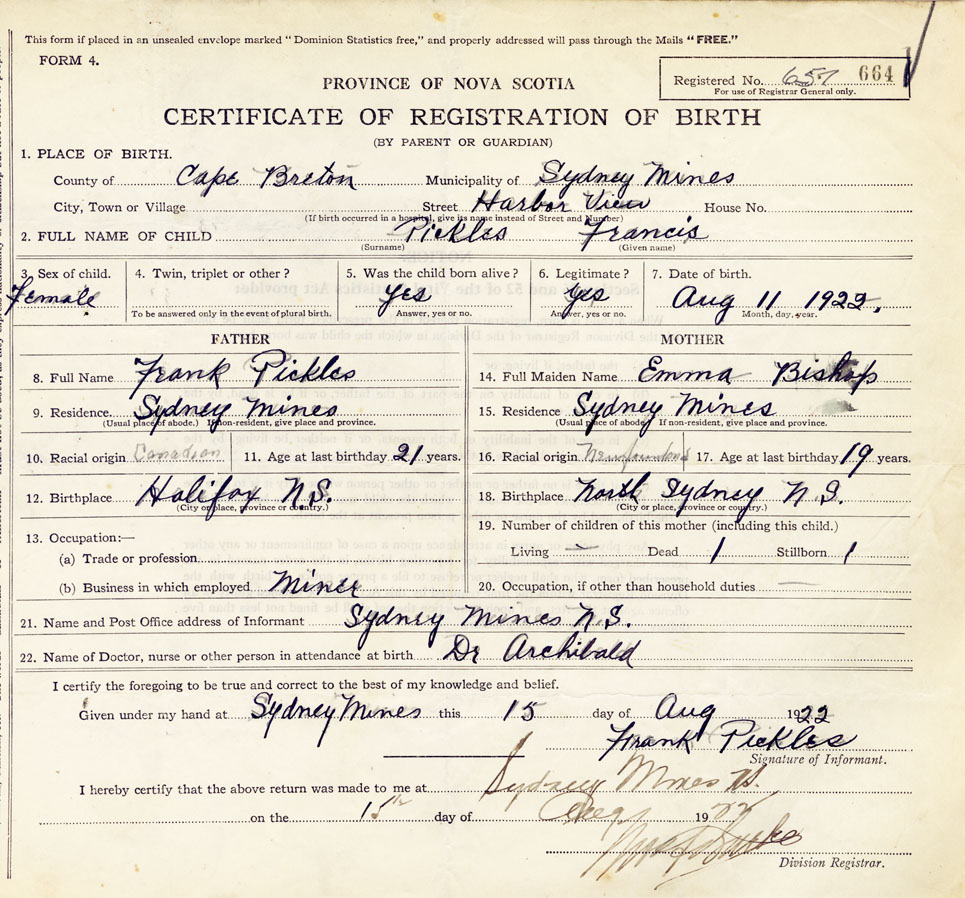 This form if placed in an unsealed envelope marked "Dominion Statistics free," and properly addressed will pass through the Mails "FREE."
FORM 4.
Registered No. 657 664
For use of Registrar General only.
PROVINCE OF NOVA SCOTIA
CERTIFICATE OF REGISTRATION OF BIRTH
(BY PARENT OR GUARDIAN)
1. PLACE OF BIRTH.
County of Cape Breton Municipality of Sydney Mines
City, Town or Village Street Harbor View House No.
(If birth occurred in a hospital, give its name instead of Street and Number)
2. FULL NAME OF CHILD Pickles Francis
(Surname) (Given name)
3. Sex of child. 4. Twin, triplet or other? 5. Was the child born alive? 6. Legitimate? 7. Date of birth.
Female yes yes Aug 11 1922.
To be answered only in the event of plural birth. Answer, yes or no. Answer, yes or no. Month, day, year.
FATHER MOTHER
8. Full Name Frank Pickles 14. Full Maiden Name Emma Bishop
9. Residence. Sydney Mines 15. Residence Sydney Mines
(Usual place of abode.) If non-resident, give place and province. (Usual place of abode) If non-resident, give place and province.
10. Racial origin Canadian 11. Age at last birthday 21 years. 16. Racial origin 17. Age at last birthday 19 years.
12. Birthplace Halifax N.S. 18. Birthplace North Sydney N.S.
(City or place, province or country.) (City or place, province or country.)
13. Occupation:— 19. Number of children of this mother (including this child.)
(a) Trade or profession Living — Dead 1 Stillborn 1
(b) Business in which employed Miner 20. Occupation, if other than household duties —
21. Name and Post Office address of Informant Sydney Mines N.S.
22. Name of Doctor, nurse or other person in attendance at birth Dr Archibald
I certify the foregoing to be true and correct to the best of my knowledge and belief.
Given under my hand at Sydney Mines this 15 day of Aug 1922
Frank Pickles
Signature of Informant.
I hereby certify that the above return was made to me at Sydney Mines N.S.
on the 15th day of Aug 1922
Division Registrar.